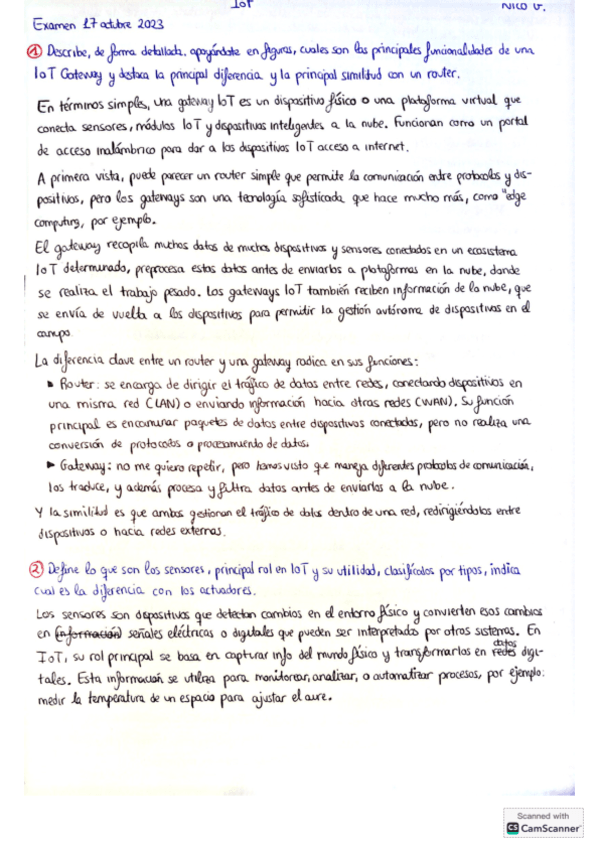 IoT
NICO V.
Examen 17 octubre 2023
① Describe, de forma detallada, apoyándote en figuras, cuales son las principales funcionalidades de una
IoT Gateway y destaca la principal diferencia y la principal similitud con un router.
En términos simples, una gateway IoT es un dispositivo físico o una plataforma virtual que
conecta sensores, módulos IoT y dispositivos inteligentes a la nube. Funcionan como un portal
de acceso inalámbrico para dar a los dispositivos IoT acceso a internet.
A primera vista, puede parecer un router simple que permite la comunicación entre protocolos y dis-
positivos, pero los gateways son una tecnología sofisticada que hace mucho más, como "edge
computing, por ejemplo.
El gateway recopila muchos datos de muchos dispositivos y sensores conectados en un ecosistema
IoT determinado, preprocesa estos datos antes de enviarlos a plataformas en la nube, donde
se realiza el trabajo pesado. Los gateways IoT también reciben información de la nube, que
se envía de vuelta a los dispositivos para permitir la gestión autónoma de dispositivos en el
campo.
La diferencia clave entre un router y una gateway radica en sus funciones:
▶ Router: se encarga de dirigir el tráfico de datos entre redes, conectando dispositivos en
una misma red (LAN) o enviando información hacia otras redes (WAN). Su función
principal es encaminar paquetes de datos entre dispositivos conectados, pero no realiza una
conversión de protocolos o procesamiento de datos.
▶ Gateway: no me quiero repetir, pero hemos visto que maneja diferentes protocolos de comunicación,
los traduce, y además procesa y filtra datos antes de enviarlos a la nube.
Y la similitud es que ambos gestionan el tráfico de datos dentro de una red, redirigiéndolos entre
dispositivos o hacia redes externas.
② Define lo que son los sensores, principal rol en IoT y su utilidad, clasifícalos por tipos, indica
cual es la diferencia con los actuadores.
Los sensores son dispositivos que detectan cambios en el entorno físico y convierten esos cambios
en (información) señales eléctricas o digitales que pueden ser interpretados por otros sistemas. En
IoT, su rol principal se basa en capturar info del mundo físico y transformarlas en redes datos digi-
tales. Esta información se utiliza para monitorear, analizar, o automatizar procesos, por ejemplo:
medir la temperatura de un espacio para ajustar el aire.
Scanned with
CS CamScanner